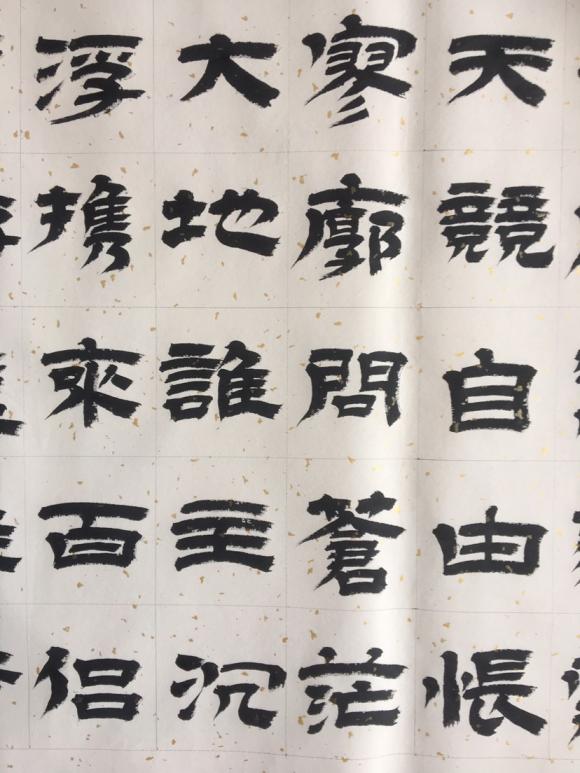 天競自由悵
寥廓問蒼茫
大地誰主沉
浮携來百侣